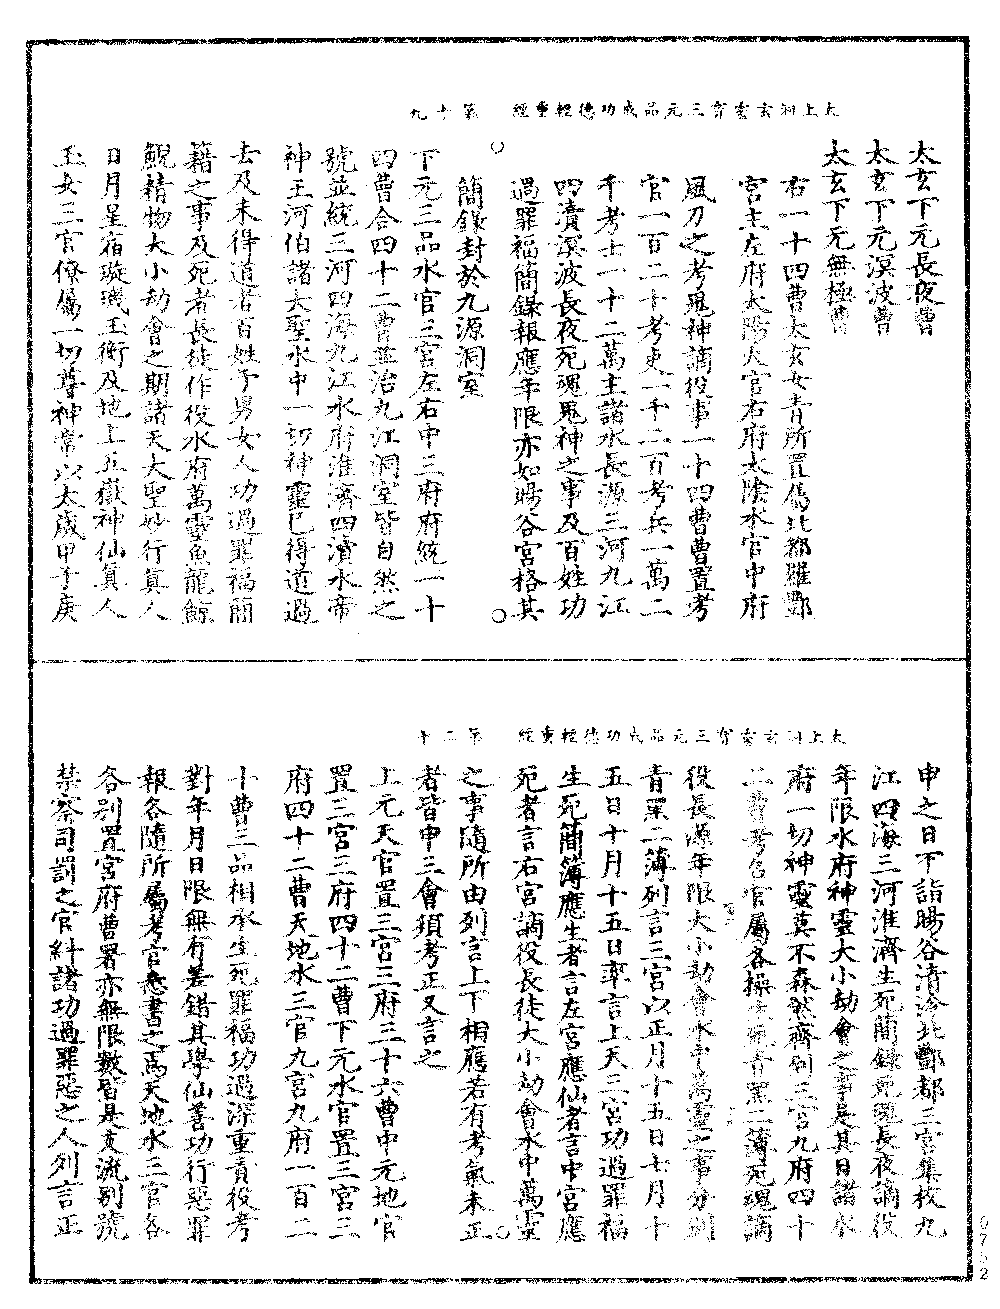 太上洞玄靈寶三元品戒功德輕重經　第十九
太玄下元長夜曹
太玄下元溟波曹
太玄下元無極曹
右一十四曹太玄女青所置僞北都羅酆
宮主左府太陽火官右府太陰水官中府
風刀之考鬼神謫役事一十四曹曹置考
官一百二十考吏一千二百考兵一萬二
千考士一十二萬主諸水長源三河九江
四瀆溟波長夜死魂鬼神之事及百姓功
過罪福簡錄報應年限亦如暘谷宮格其
簡錄封於九源洞室
下元三品水官三宮左右中三府府統一十
四曹合四十二曹並治九江洞室皆自然之
號並統三河四海九江水府淮濟四瀆水帝
神王河伯諸大聖水中一切神靈已得道過
去及未得道者百姓子男女人功過罪福簡
籍之事及死者長徒作役水府萬靈魚龍鯨
鯢精物大小劫會之期諸天大聖妙行真人
日月星宿璇璣玉衡及地上五嶽神仙真人
玉女三官僚屬一切尊神常以太歲甲子庚
太上洞玄靈寶三元品戒功德輕重經　第二十
申之日下詣暘谷清泠北酆都三宮集校九
江四海三河淮濟生死簡錄死魂長夜謫役
年限水府神靈大小劫會之事是其日諸水
府一切神靈莫不森然齊到三官九府四十
二曹考吏官屬各操生死青黑二簿死魂謫
役長源年限大小劫會水中萬靈之事分別
青黑二簿列言三宮以正月十五日七月十
五日十月十五日奉言上天三宮功過罪福
生死簡簿應生者言左宮應仙者言中宮應
死者言右宮謫役長徒大小劫會水中萬靈
之事隨所由列言上下相應若有考氣未正
者皆申三會須考正又言之
上元天官置三宮三府三十六曹中元地官
置三宮三府四十二曹下元水官置三宮三
府四十二曹天地水三官九宮九府一百二
十曹三品相承生死罪福功過深重責役考
對年月日限無有差錯其學仙善功行惡罪
報各隨所屬考官悉書之焉天地水三官各
各別置宮府曹署亦無限數皆是支流別號
禁察司罰之官糾諸功過罪惡之人列言正
0762